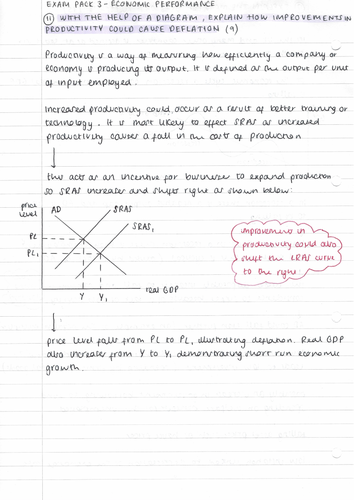 EXAM PACK 3 - ECONOMIC PERFORMANCE
(ii) WITH THE HELP OF A DIAGRAM, EXPLAIN HOW IMPROVEMENTS IN
PRODUCTIVITY COULD CAUSE DEFLATION (9)
Productivity is a way of measuring how efficiently a company or
economy is producing its output. It is defined as the output per unit
of input employed.
Increased productivity could occur as a result of better training or
technology. It is most likely to effect SRAS as increased
productivity causes a fall in the costs of production
this acts as an incentive for businesses to expand production
so SRAS increases and shifts right as shown below:
price
level
AD
SRAS
SRAS1
PL
PL1
Y
Y1
real GDP
improvements in
productivity could also
shift the LRAS curve
to the right
price level falls from PL to PL1 illustrating deflation. Real GDP
also increases from Y to Y1 demonstrating short run economic
growth.